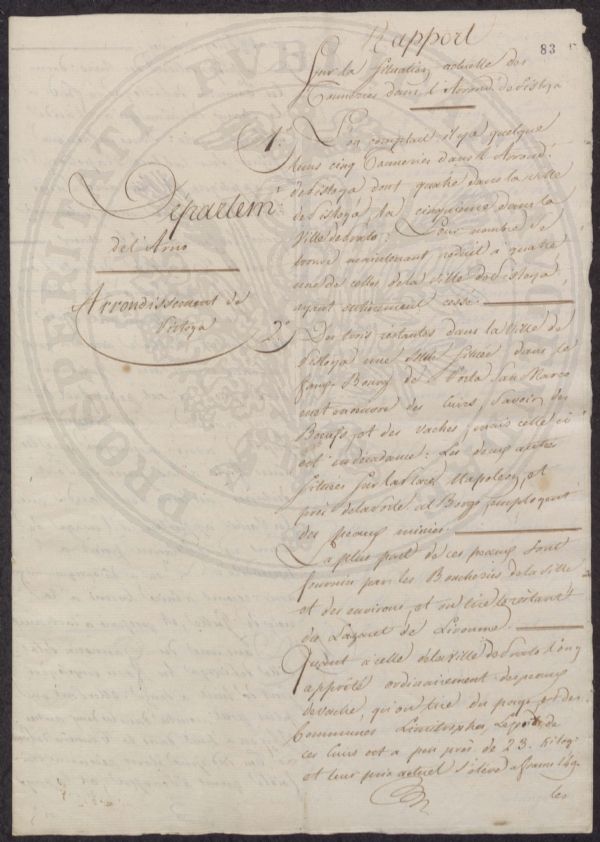 83
Rapport
Sur la Situation actuelle des
Tanneries dans l'Arrond.t de Pistoya
Departem.t
del'Arno
Arrondissement de
Pistoya
1.o L'on comptait il y a quelque
tems cinq Tanneries dans l'Arrond.t
de Pistoya dont quatre dans la ville
de Pistoya, la cinquieme dans la
Ville de Prato: Leur nombre se
trouve maintenant reduit a quatre
une de celles de la ville de Pistoya,
ayant entierement cessé.
2.o Des trois restantes dans la Ville de
Pistoya une située dans le
faux-Bourg de Porta San Marco
met en œuvre des Cuirs, savoir des
Boeufs, et des vaches, mais celle ci
est en decadance: Les deux autres
situées sur la Place Napoleon, et
près de la Porte al Borgo employent
des peaux minies.
La plus part de ces peaux sont
fournies par les Boucheries de la Ville
et des environs, et on tire le restant
du Lazaret de Livourne.
Quant à celle de la Ville de Prato l'on y
apprête ordinairement des peaux
de vache, qu'on tire du pays, et des
Communes Limitrophes, Le poids de
ces Cuirs est a peu près de 23. Kilog.
et leur prix actuel s'élève a francs
les
PROSPERITATI PVBLICAE